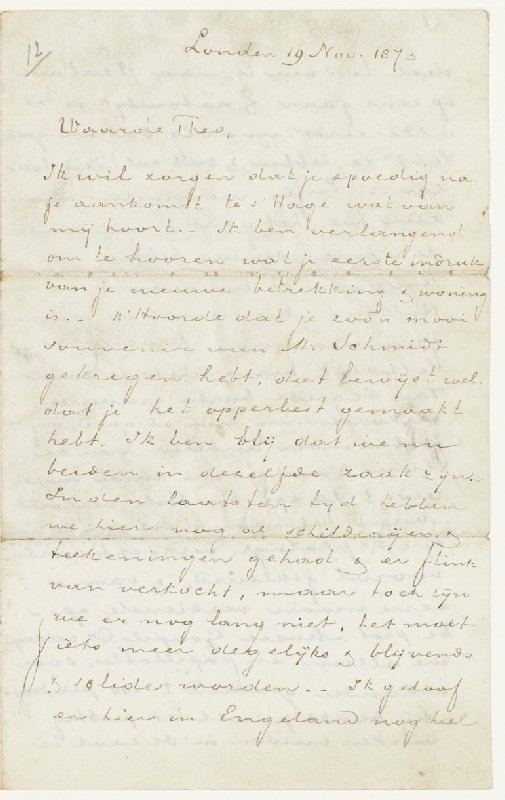 12
Londen 19 Nov. 1873
Waarde Theo,
Ik wil zorgen dat je spoedig na
je aankomst te 's Hage wat van
mij hoort.- Ik ben verlangend
om te hooren wat je eerste indruk
van je nieuwe betrekking & woning
is.- k'Hoorde dat je zoo'n mooi
souvenir van Mr. Schmidt
gekregen hebt, dat bewijst wel
dat je het opperbest gemaakt
hebt. Ik ben blij dat we nu
beiden in dezelfde zaak zijn.
In den laatsten tijd hebben
we hier nog al schilderijen &
teekeningen gehad & er flink
van verkocht, maar toch zijn
we er nog lang niet, het moet
iets meer degelijks & blijvends
& solides worden.- Ik geloof
er hier in Engeland nog heel